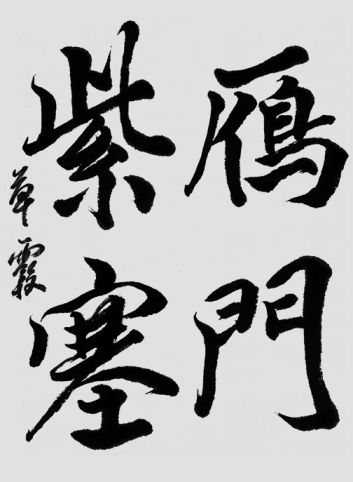 鴈門
紫塞
霞